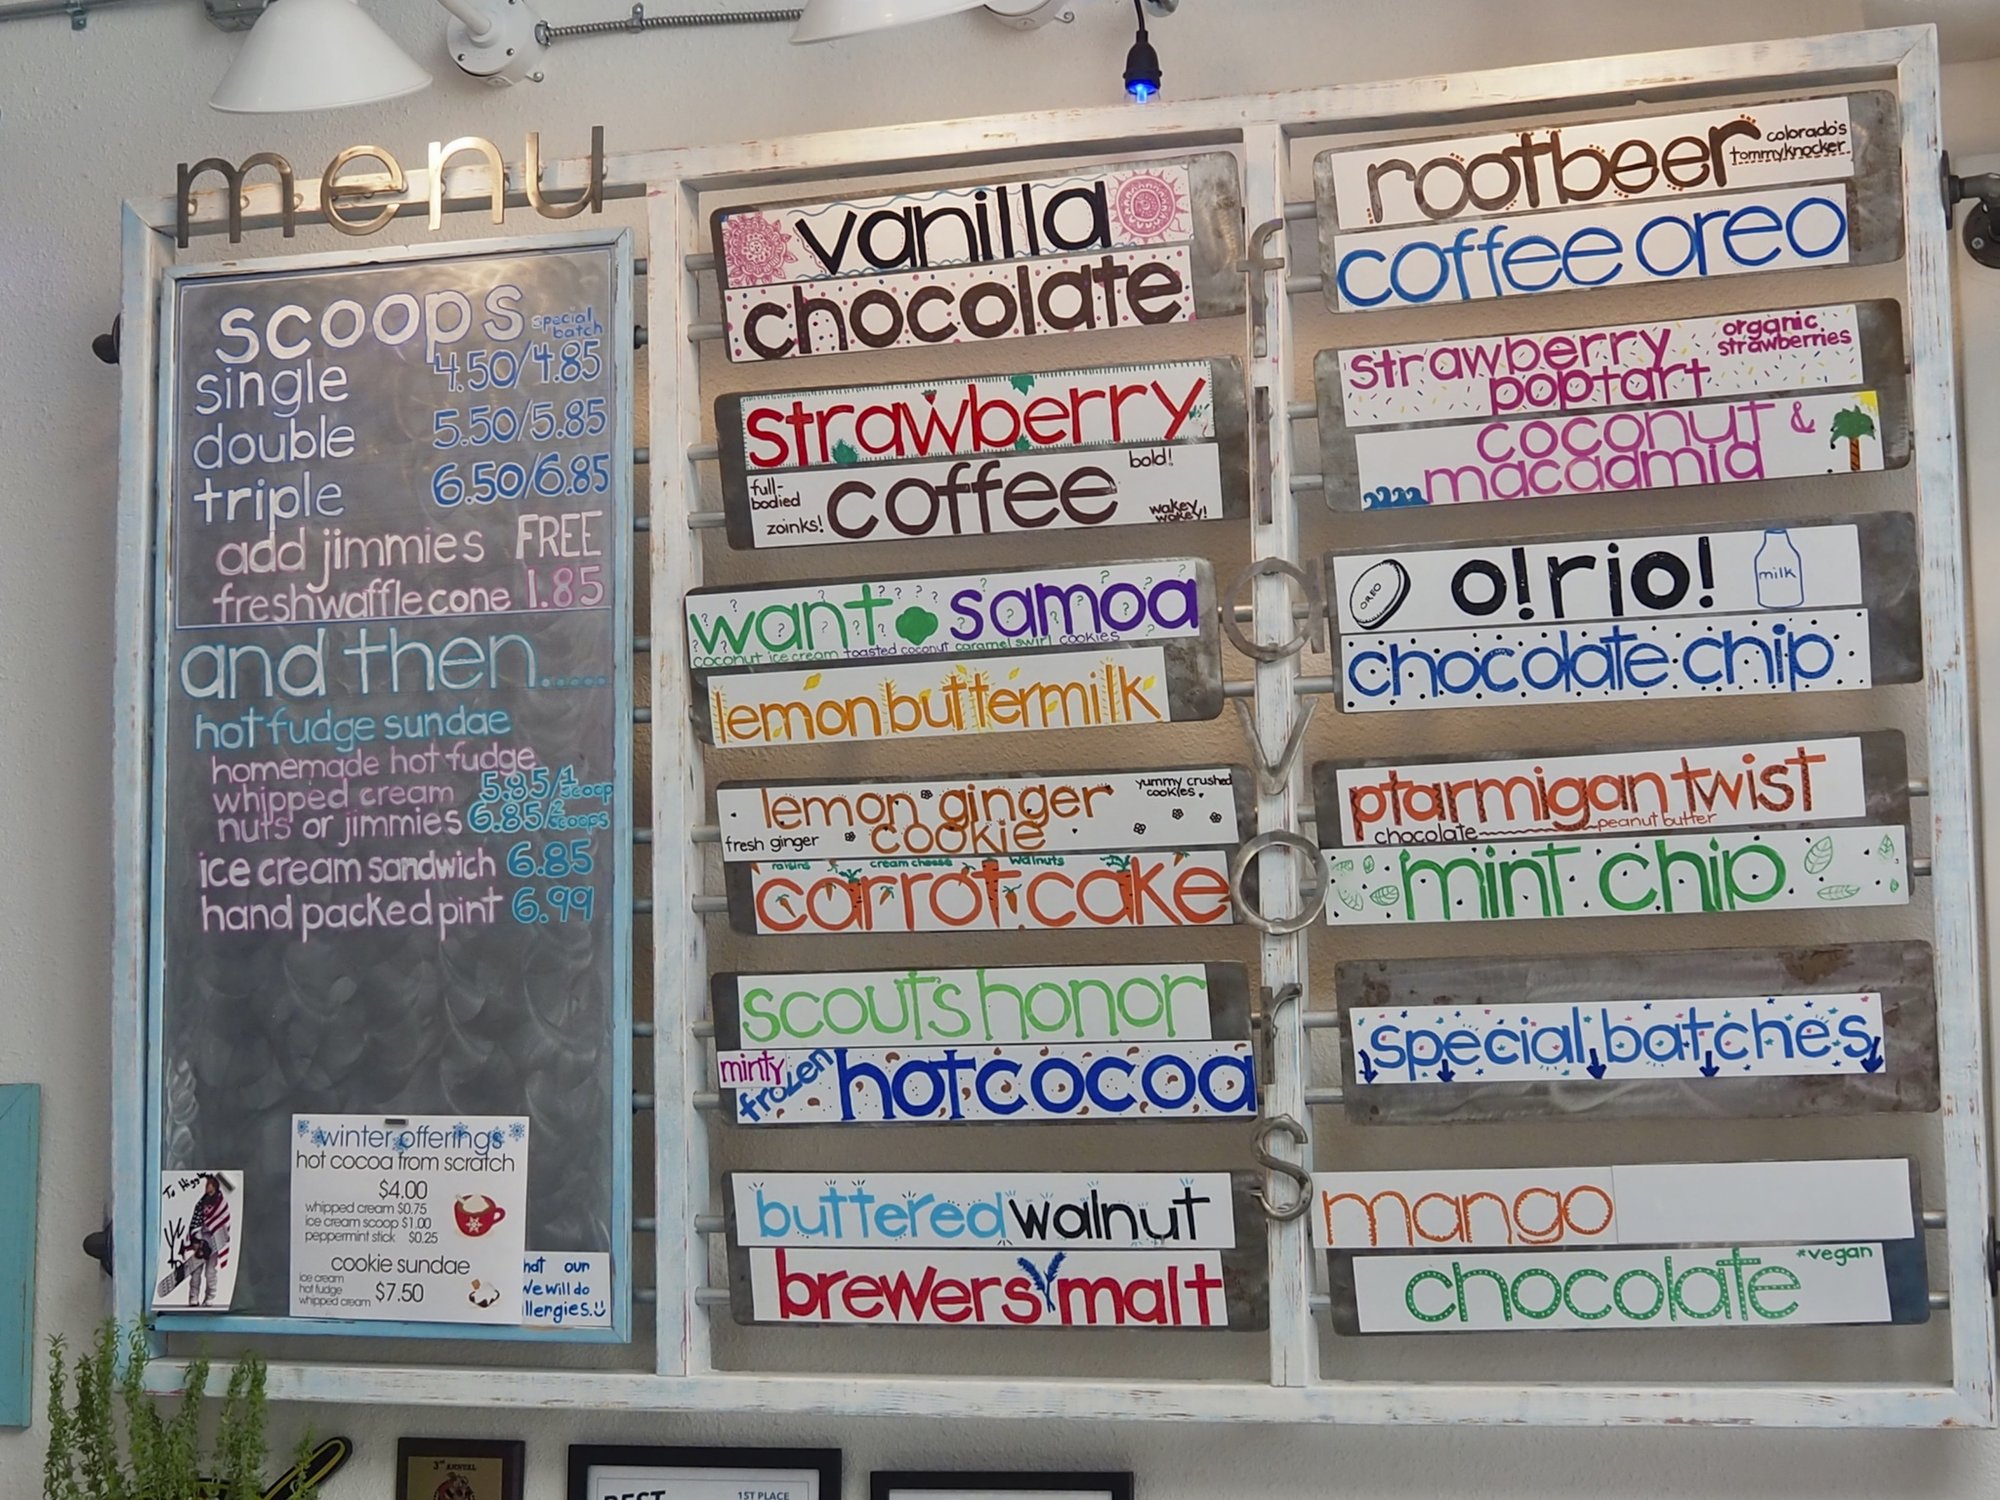 menu
scoops
special
batch
single 4.50/4.85
double 5.50/5.85
triple 6.50/6.85
add jimmies FREE
fresh waffle cone 1.85
and then......
hot fudge sundae
homemade hot fudge
whipped cream 5.85/1 scoop
nuts or jimmies 6.85/2 scoops
ice cream sandwich 6.85
hand packed pint 6.99
winter offerings
hot cocoa from scratch
$4.00
whipped cream $0.75
ice cream scoop $1.00
peppermint stick $0.25
cookie sundae
ice cream
hot fudge
whipped cream
$7.50
our
we will do
To
flavors
vanilla
chocolate
strawberry
full-bodied
zoinks!
coffee
bold!
wakey wakey!
want samoa
coconut ice cream toasted coconut caramel swirl cookies
lemon buttermilk
lemon ginger
cookie
yummy crushed
cookies
fresh ginger
raisins cream cheese walnuts
carrot cake
scouts honor
minty
frozen hot cocoa
buttered walnut
brewers malt
rootbeer
colorado's
tommyknocker
coffee oreo
strawberry
poptart
organic
strawberries
coconut &
macadamia
OREO
o!rio!
milk
chocolate chip
ptarmigan twist
chocolate peanut butter
mint chip
special batches
mango
chocolate
*vegan
3rd ANNUAL
BEST
1ST PLACE